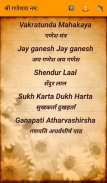 श्री गणेशाय नमः
Vakratunda Mahakaya
गणेश मंत्र
Jay ganesh Jay ganesh
गणेश आरती
Shendur Laal
शेंदुर लाल
Sukh Karta Dukh Harta
सुखकर्ता दुखहर्ता
Ganapati Atharvashirsha
गणपति अथर्वशीर्ष पाठ